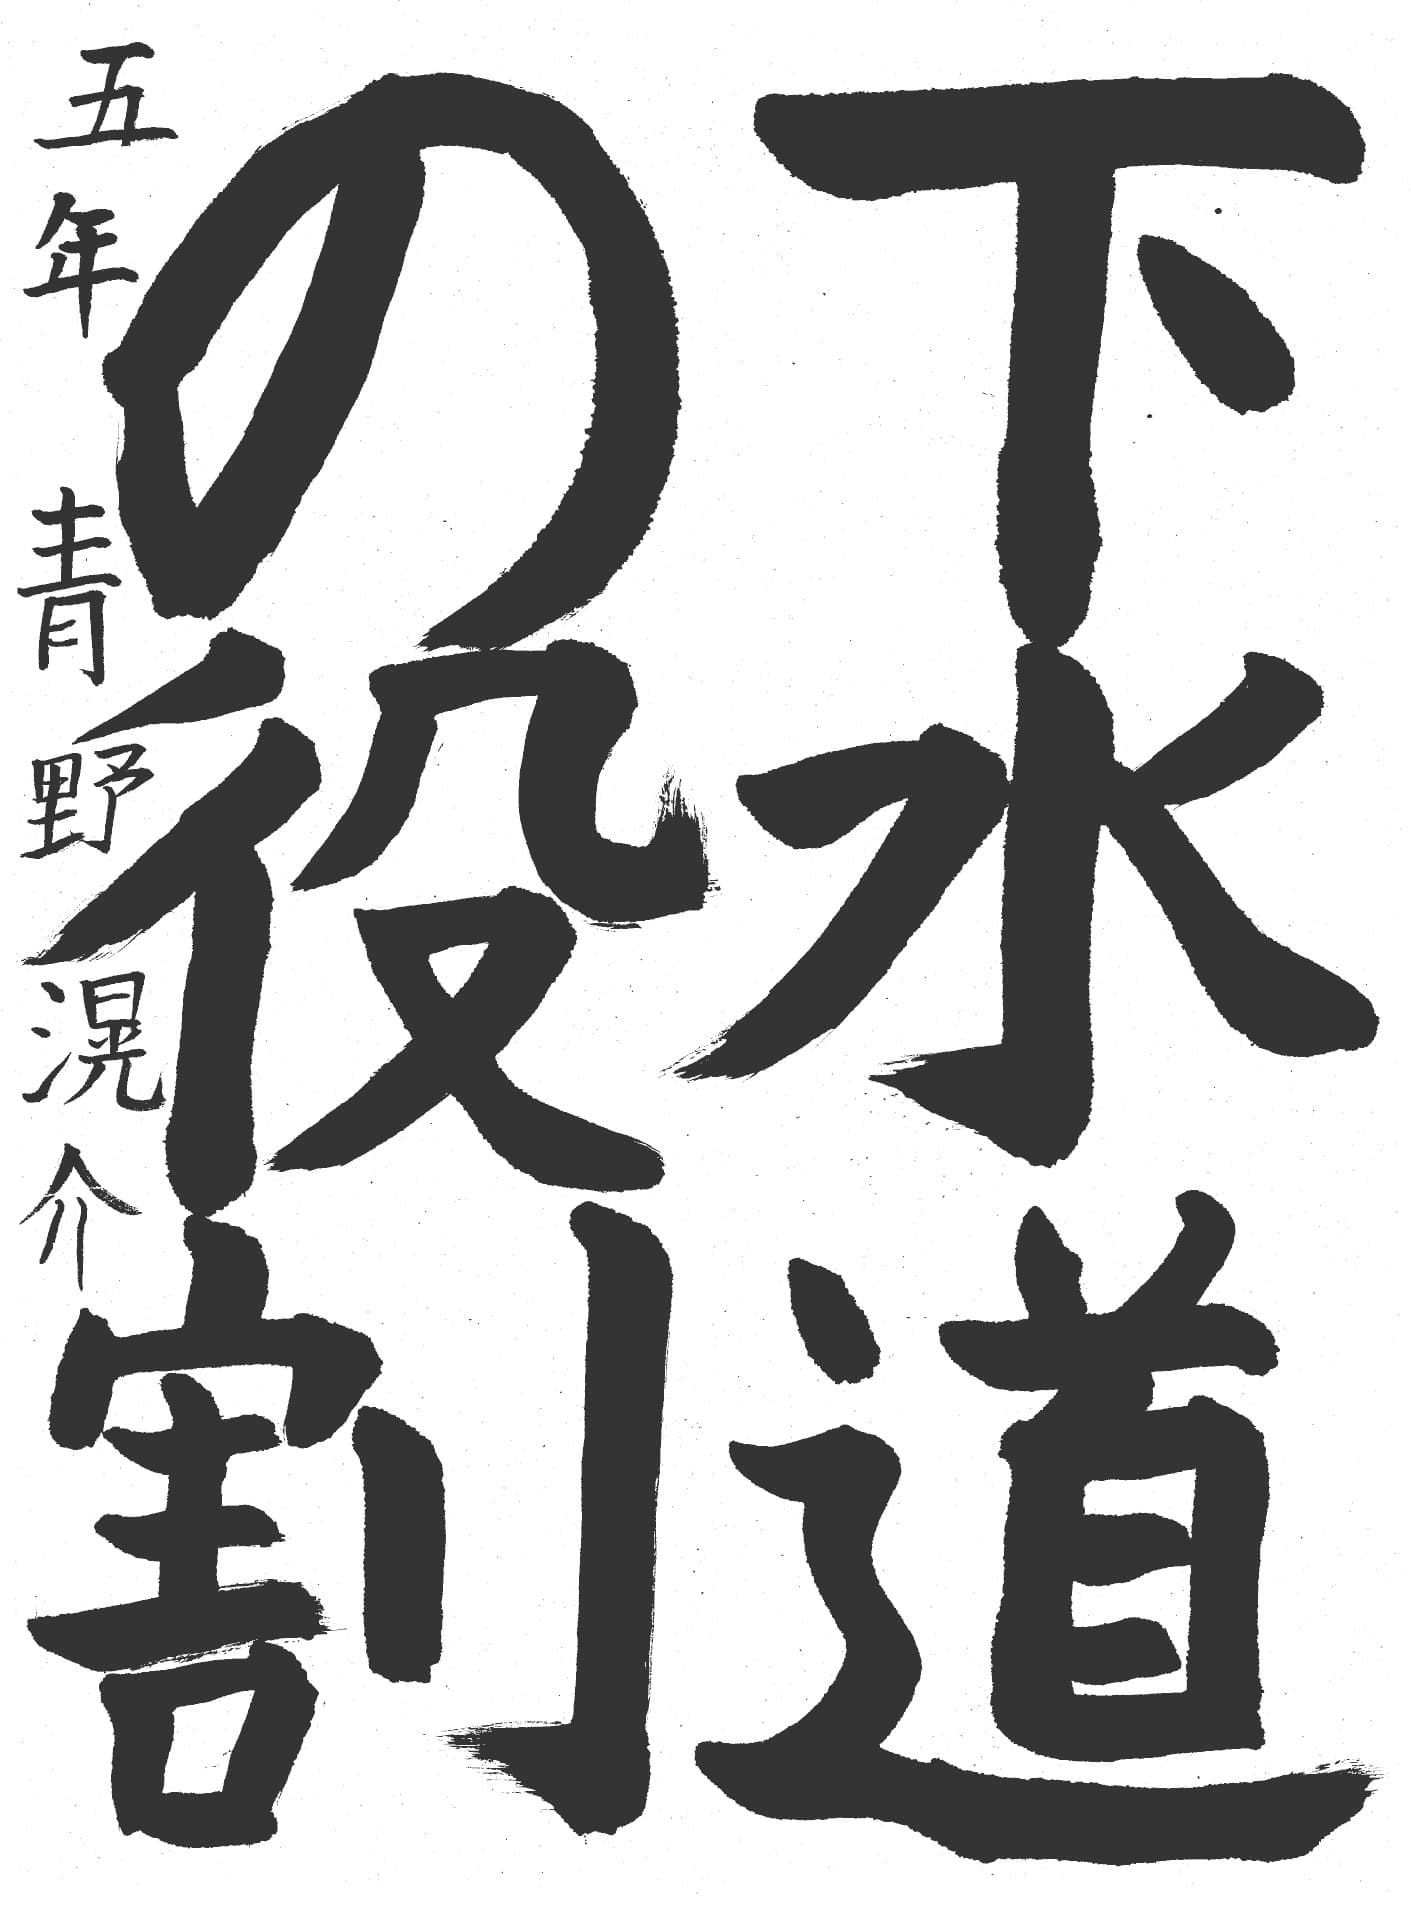 下水道
の役割
五年 青野滉介